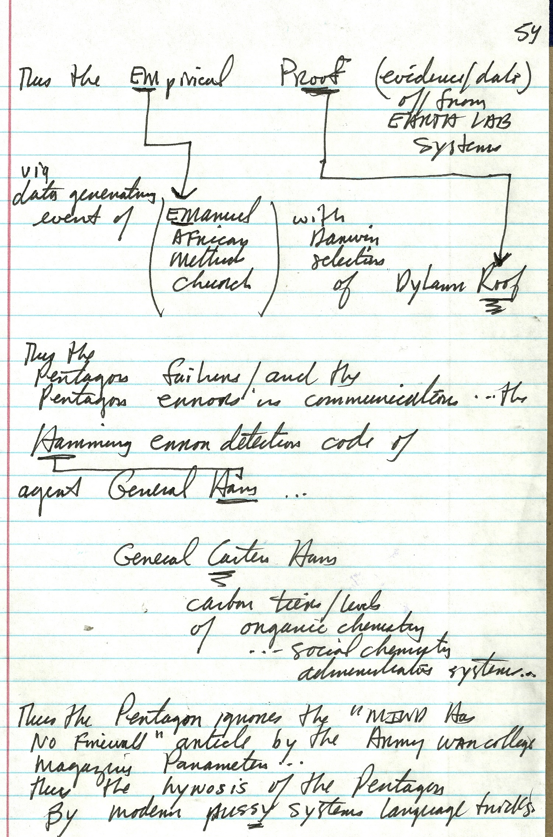 54
Thus the EMpirical Proof (evidence/data)
off from
EARTH LAB
systems
via
data generating
event of (EManuel
African
Method
Church) with
Darwin
selection
of Dylann Roof
Thus the
Pentagon failures/and the
Pentagon errors in communication ... the
Hamming error detection code of
agent General Ham ...
General Carter Ham
carbon tiers/levels
of organic chemistry
... social chemistry
administrator systems...
Thus the Pentagon ignores the "MIND Has
No Firewall" article by the Army war college
magazine Parameter ...
thus the hynosis of the Pentagon
By modern pussy systems language tricks